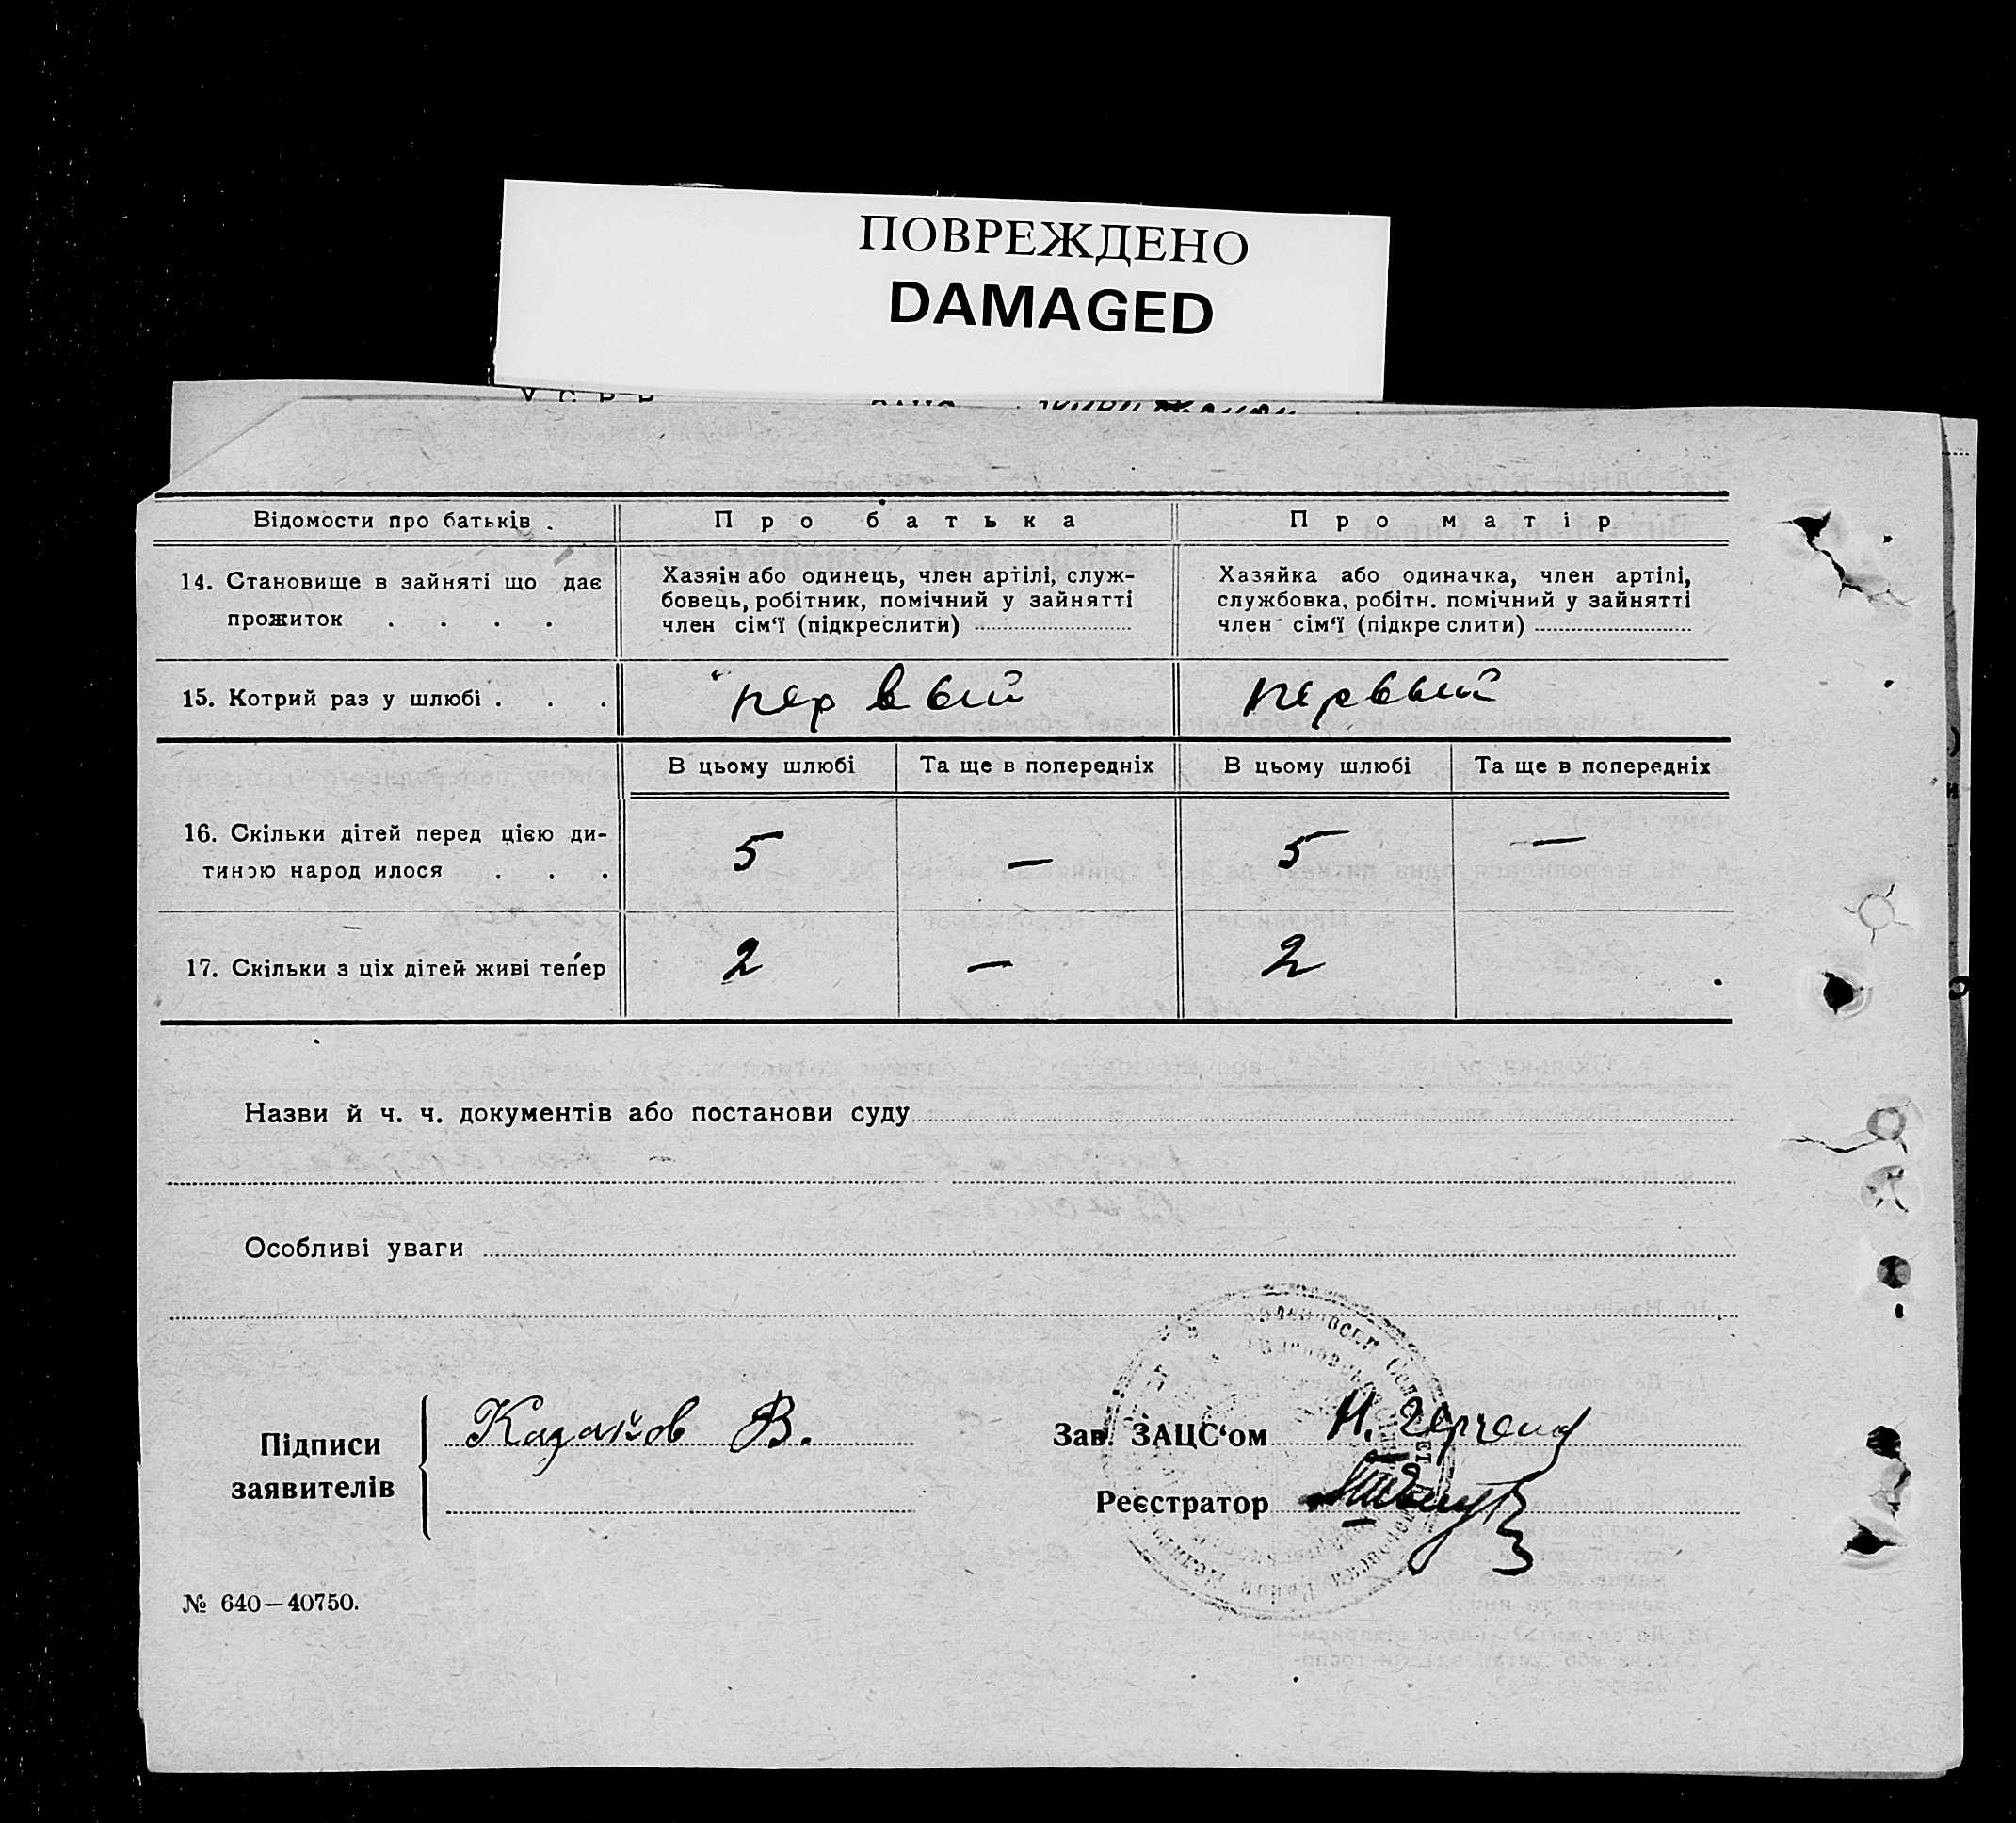 ПОВРЕЖДЕНО
DAMAGED
Відомости про батьків .
Про батька
Про матір
14. Становище в зайняті що дає
прожиток . . . .
Хазяін або одинець, член артілі, служ-
бовець, робітник, помічний у зайнятті
член сім‘ї (підкреслити)
Хазяйка або одиначка, член артілі,
службовка, робітн. помічний у зайнятті
член сім‘ї (підкре слити)
15. Котрий раз у шлюбі . . .
первый
первый
В цьому шлюбі
Та ще в попередніх
В цьому шлюбі
Та ще в попередніх
16. Скільки дітей перед цією ди-
тиною народ илося . . .
5
—
5
—
17. Скільки з ціх дітей живі тепер
2
—
2
Назви й ч. ч. документів або постанови суду
Особливі уваги
Підписи
заявителів
Казаков В.
Зав. ЗАЦС‘ом
Н.
Реєстратор
№ 640—40750.